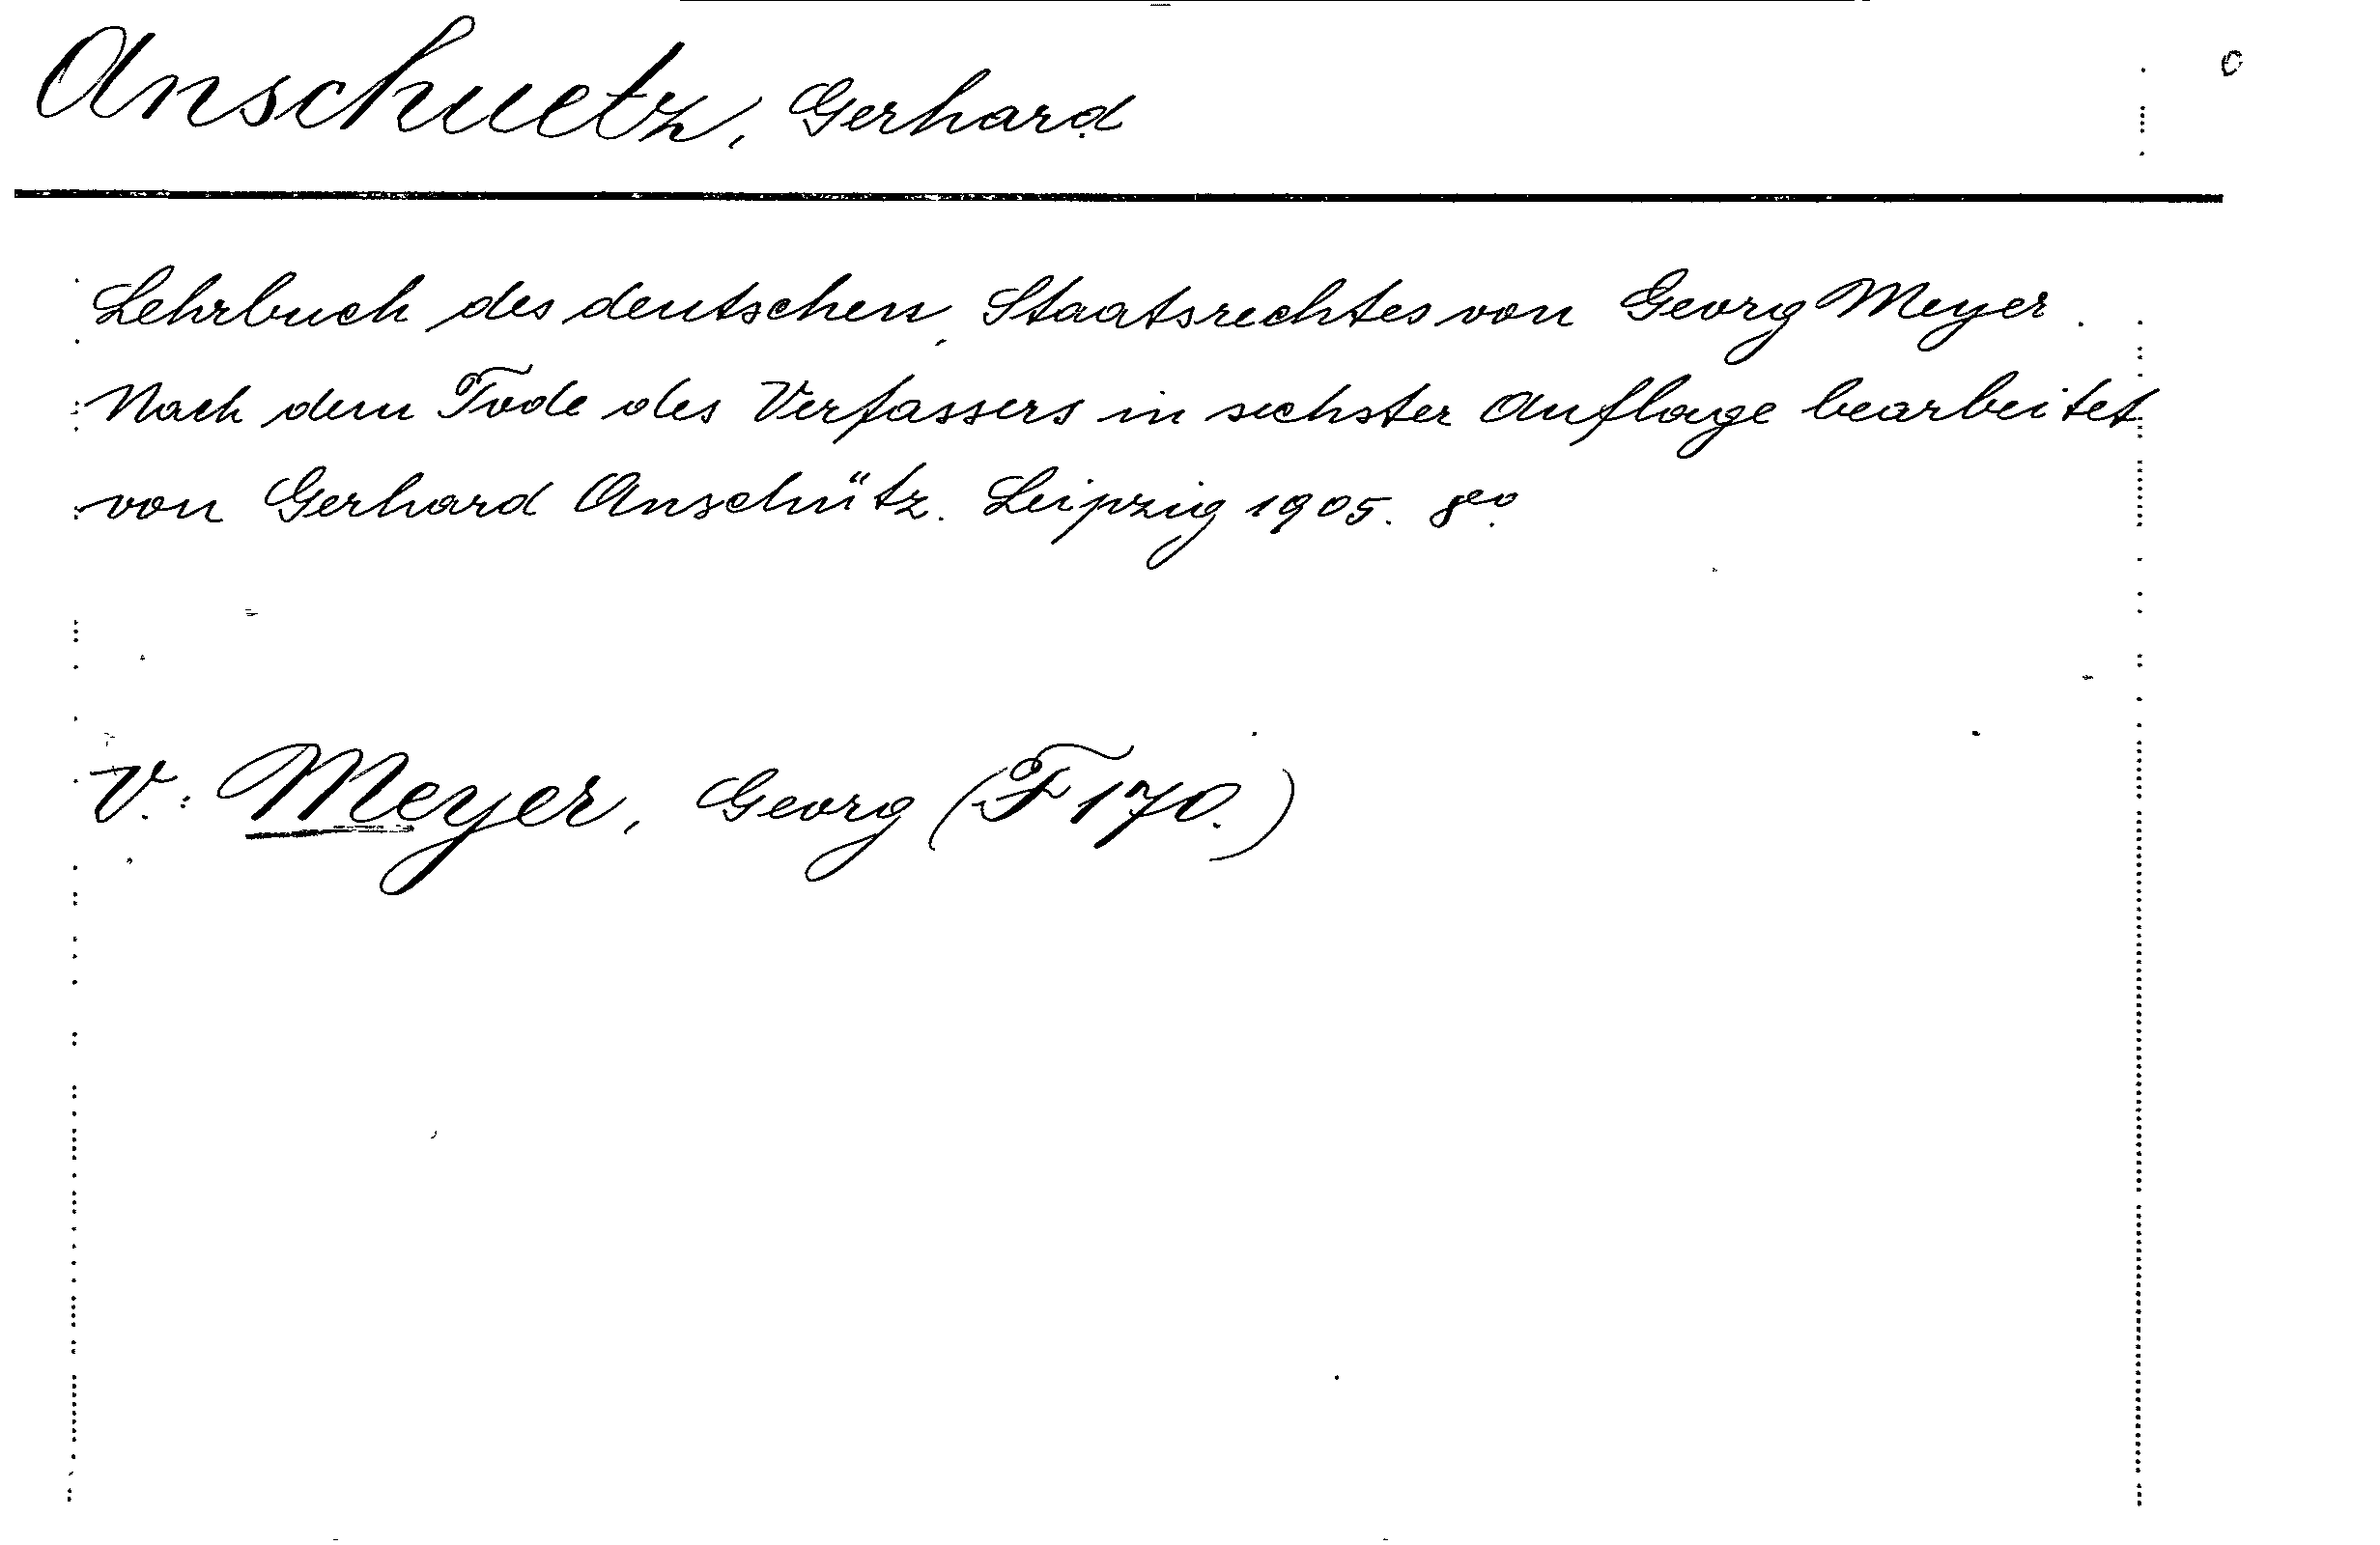 Anschuetz, Gerhard
Lehrbuch des deutschen Staatsrechtes von Georg Meyer.
Nach dem Tode des Verfassers in sechster Auflage bearbeitet
von Gerhard Anschütz. Leipzig 1905. 8vo.
V.: Meyer, Georg (F 170.)